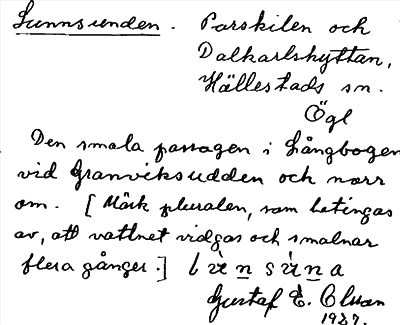 Sunnsunden. Parskilen och
Dalkarlshyttan,
Hällestads sn.
Ögl
Den smala passagen i Långbogen
vid Granviksudden och norr
om. [Märk pluralen, som betingas
av, att vattnet vidgas och smalnar
flera gånger.]
Gustaf E. Olsson
1927.